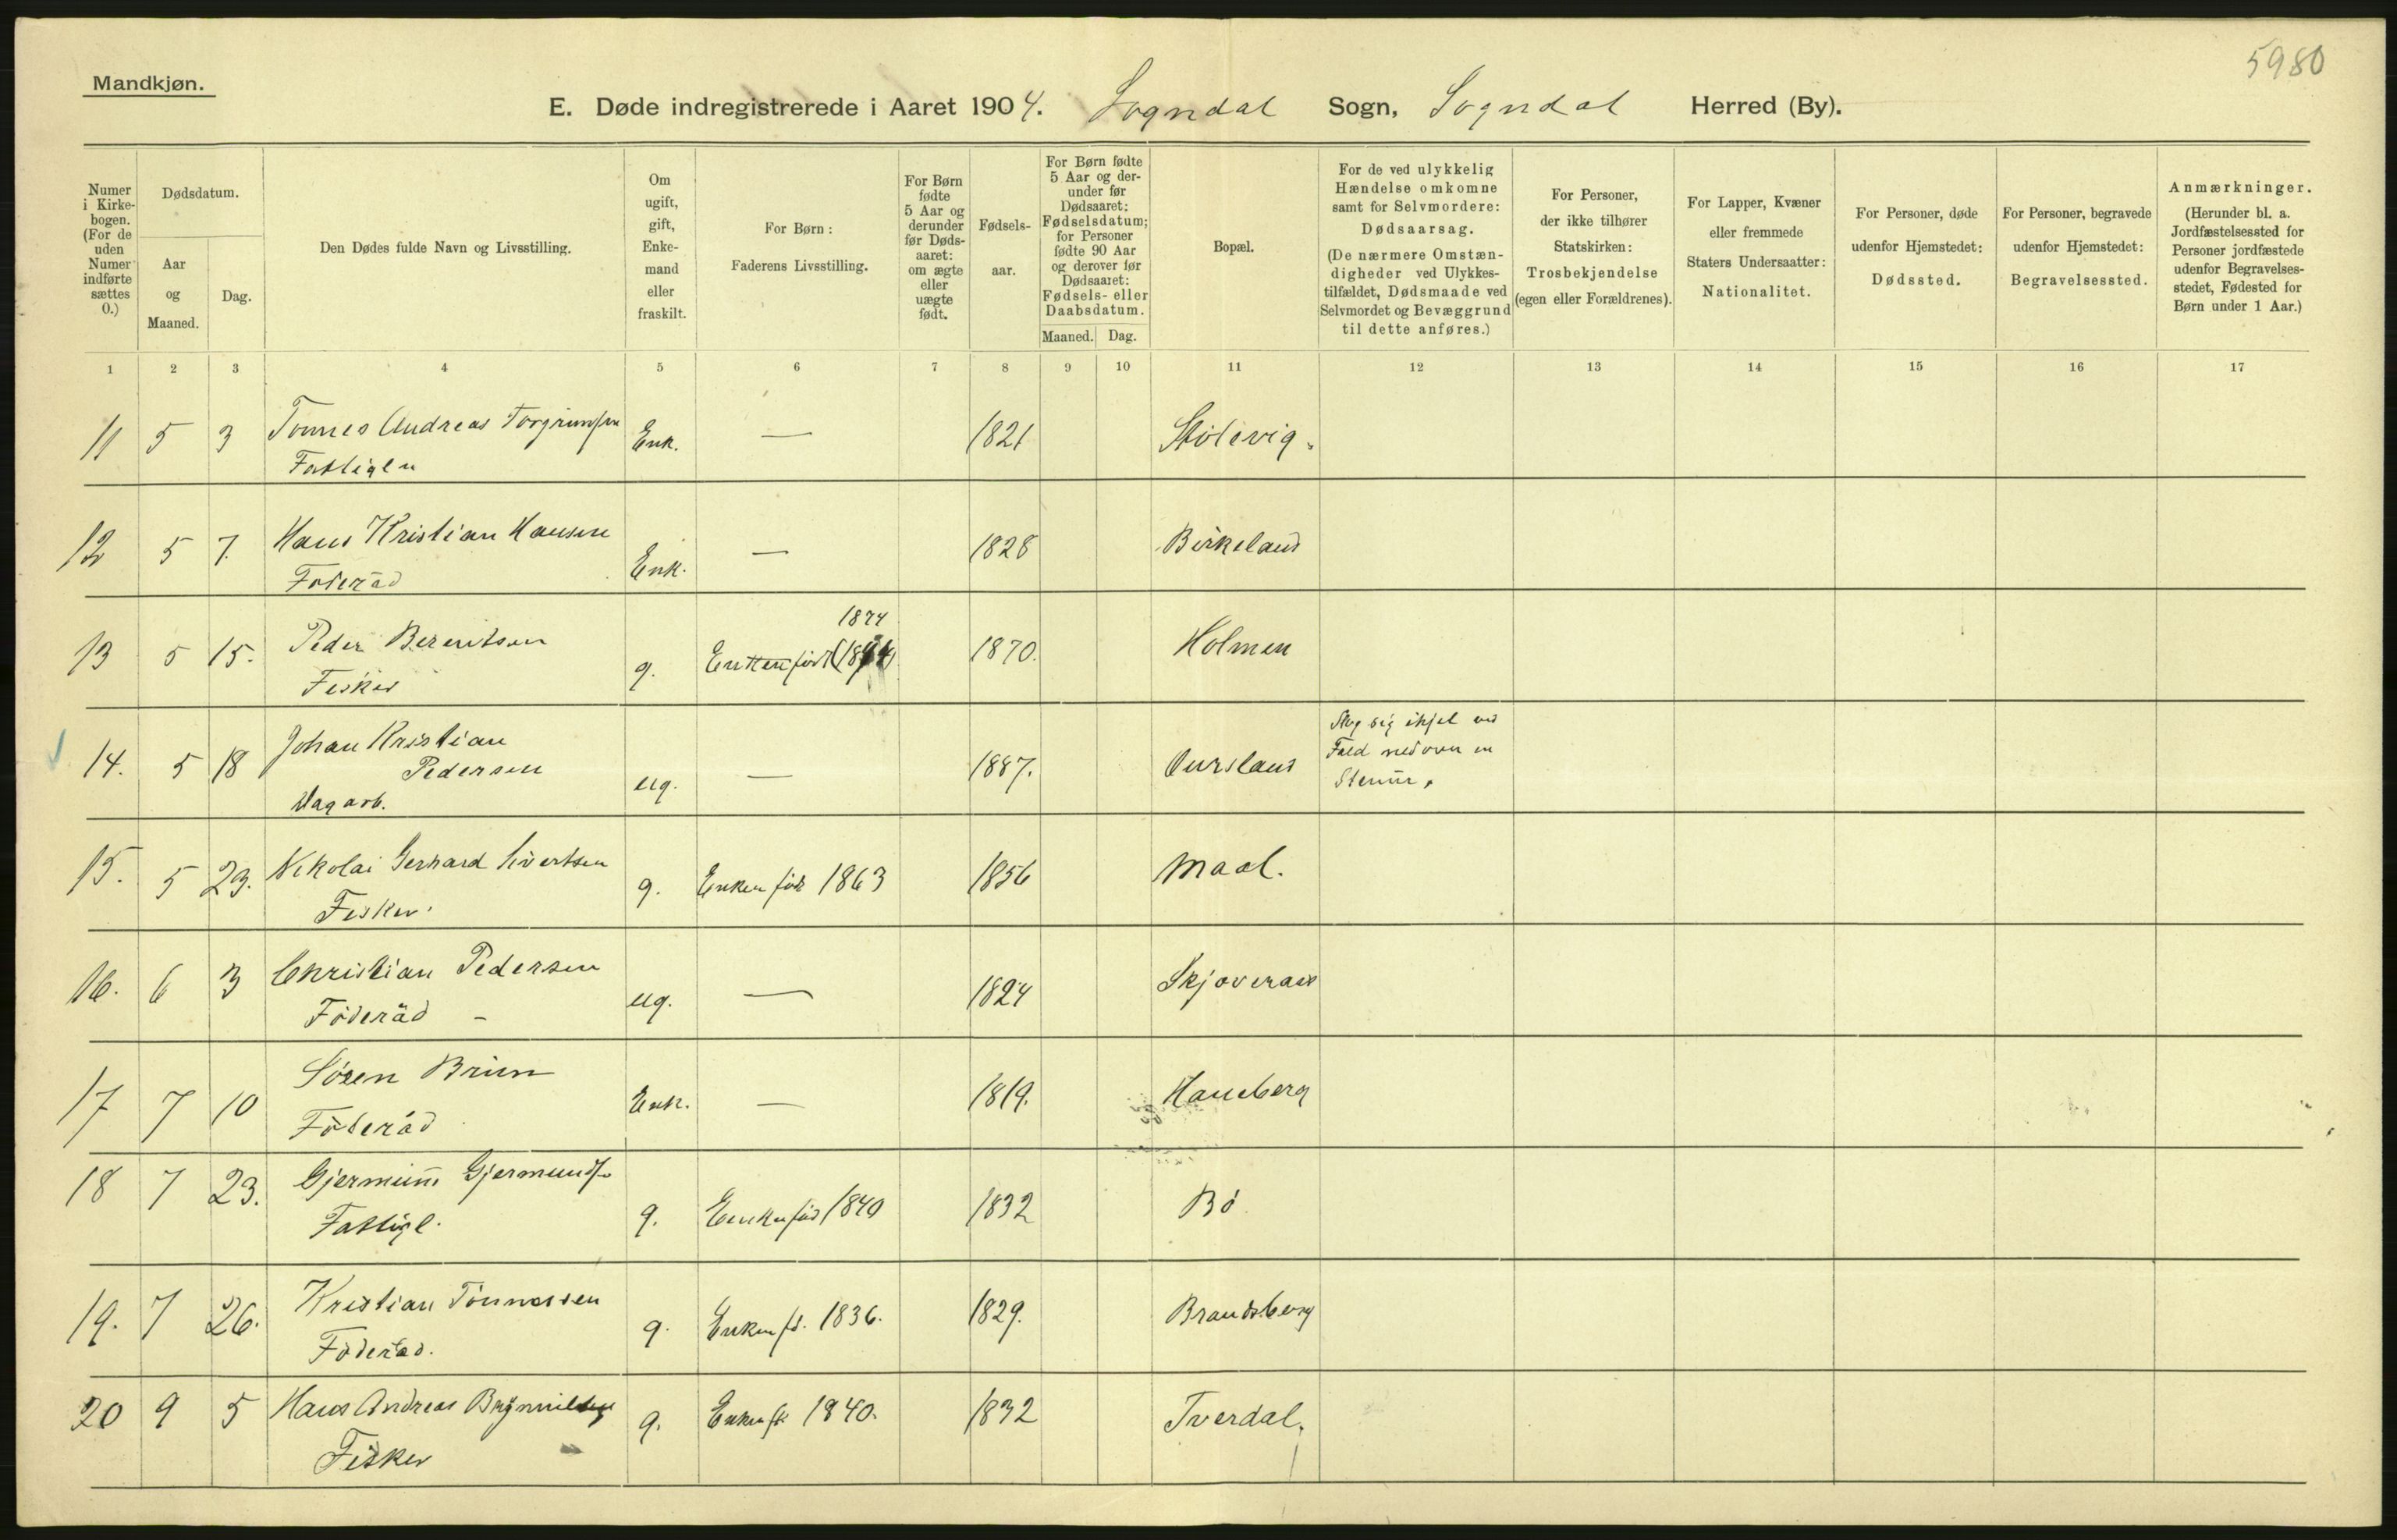 5980
Mandkjøn.
E. Døde indregistrerede i Aaret 1904. Sogndal Sogn, Sogndal Herred (By).
Numer i Kirkebogen. (For de uden Numer indførte sættes 0.)
Dødsdatum.
Aar og Maaned.
Dag.
Den Dødes fulde Navn og Livsstilling.
Om ugift, gift, Enkemand eller fraskilt.
For Børn: Faderens Livsstilling.
For Børn fødte 5 Aar og derunder før Dødsaaret: om ægte eller uægte født.
Fødselsaar.
For Børn fødte 5 Aar og derunder før Dødsaaret: Fødselsdatum; for Personer fødte 90 Aar og derover før Dødsaaret: Fødsels- eller Daabsdatum.
Maaned. Dag.
Bopæl.
For de ved ulykkelig Hændelse omkomne samt for Selvmordere: Dødsaarsag. (De nærmere Omstændigheder ved Ulykkestilfældet, Dødsmaade ved Selvmordet og Bevæggrund til dette anføres.)
For Personer, der ikke tilhører Statskirken: Trosbekjendelse (egen eller Forældrenes).
For Lapper, Kvæner eller fremmede Staters Undersaatter: Nationalitet.
For Personer, døde udenfor Hjemstedet: Dødssted.
For Personer, begravede udenfor Hjemstedet: Begravelsessted.
Anmærkninger. (Herunder bl. a. Jordfæstelsessted for Personer jordfæstede udenfor Begravelsesstedet, Fødested for Børn under 1 Aar.)
1 2 3 4 5 6 7 8 9 10 11 12 13 14 15 16 17
11 5 3 Tønnes Andreas Torgrimsen Enk. — 1821
Fattigln
12 5 7. Hans Kristian Hansen Enk. — 1828 Birkeland
Føderåd
1874
13 5 15. Peder Berentsen g. Enken født 1870. Holmen
Fisker
14. 5 18 Johan Kristian ug. — 1887. Slog sig ihjel ved
Pedersen Fald nedover en
Dagarb. Stenur.
15. 5 23. Nikolai Gerhard Sivertsen g. Enken født 1863 1856 Maal.
Fisker.
16. 6 3 Christian Pedersen ug. — 1824
Føderåd -
17 7 10 Søren Brun Enk. — 1819. Haneberg
Føderåd
18 7 23. Gjermund Gjermunds. g. Enken fød 1840 1832 Bø
Fattigl.
19. 7 26. Kristian Tønnessen g. Enken fd. 1836. 1829. Brandsberg
Føderåd.
20 9 5 Hans Andreas g. Enken f. 1840. 1832 Tverdal.
Fisker